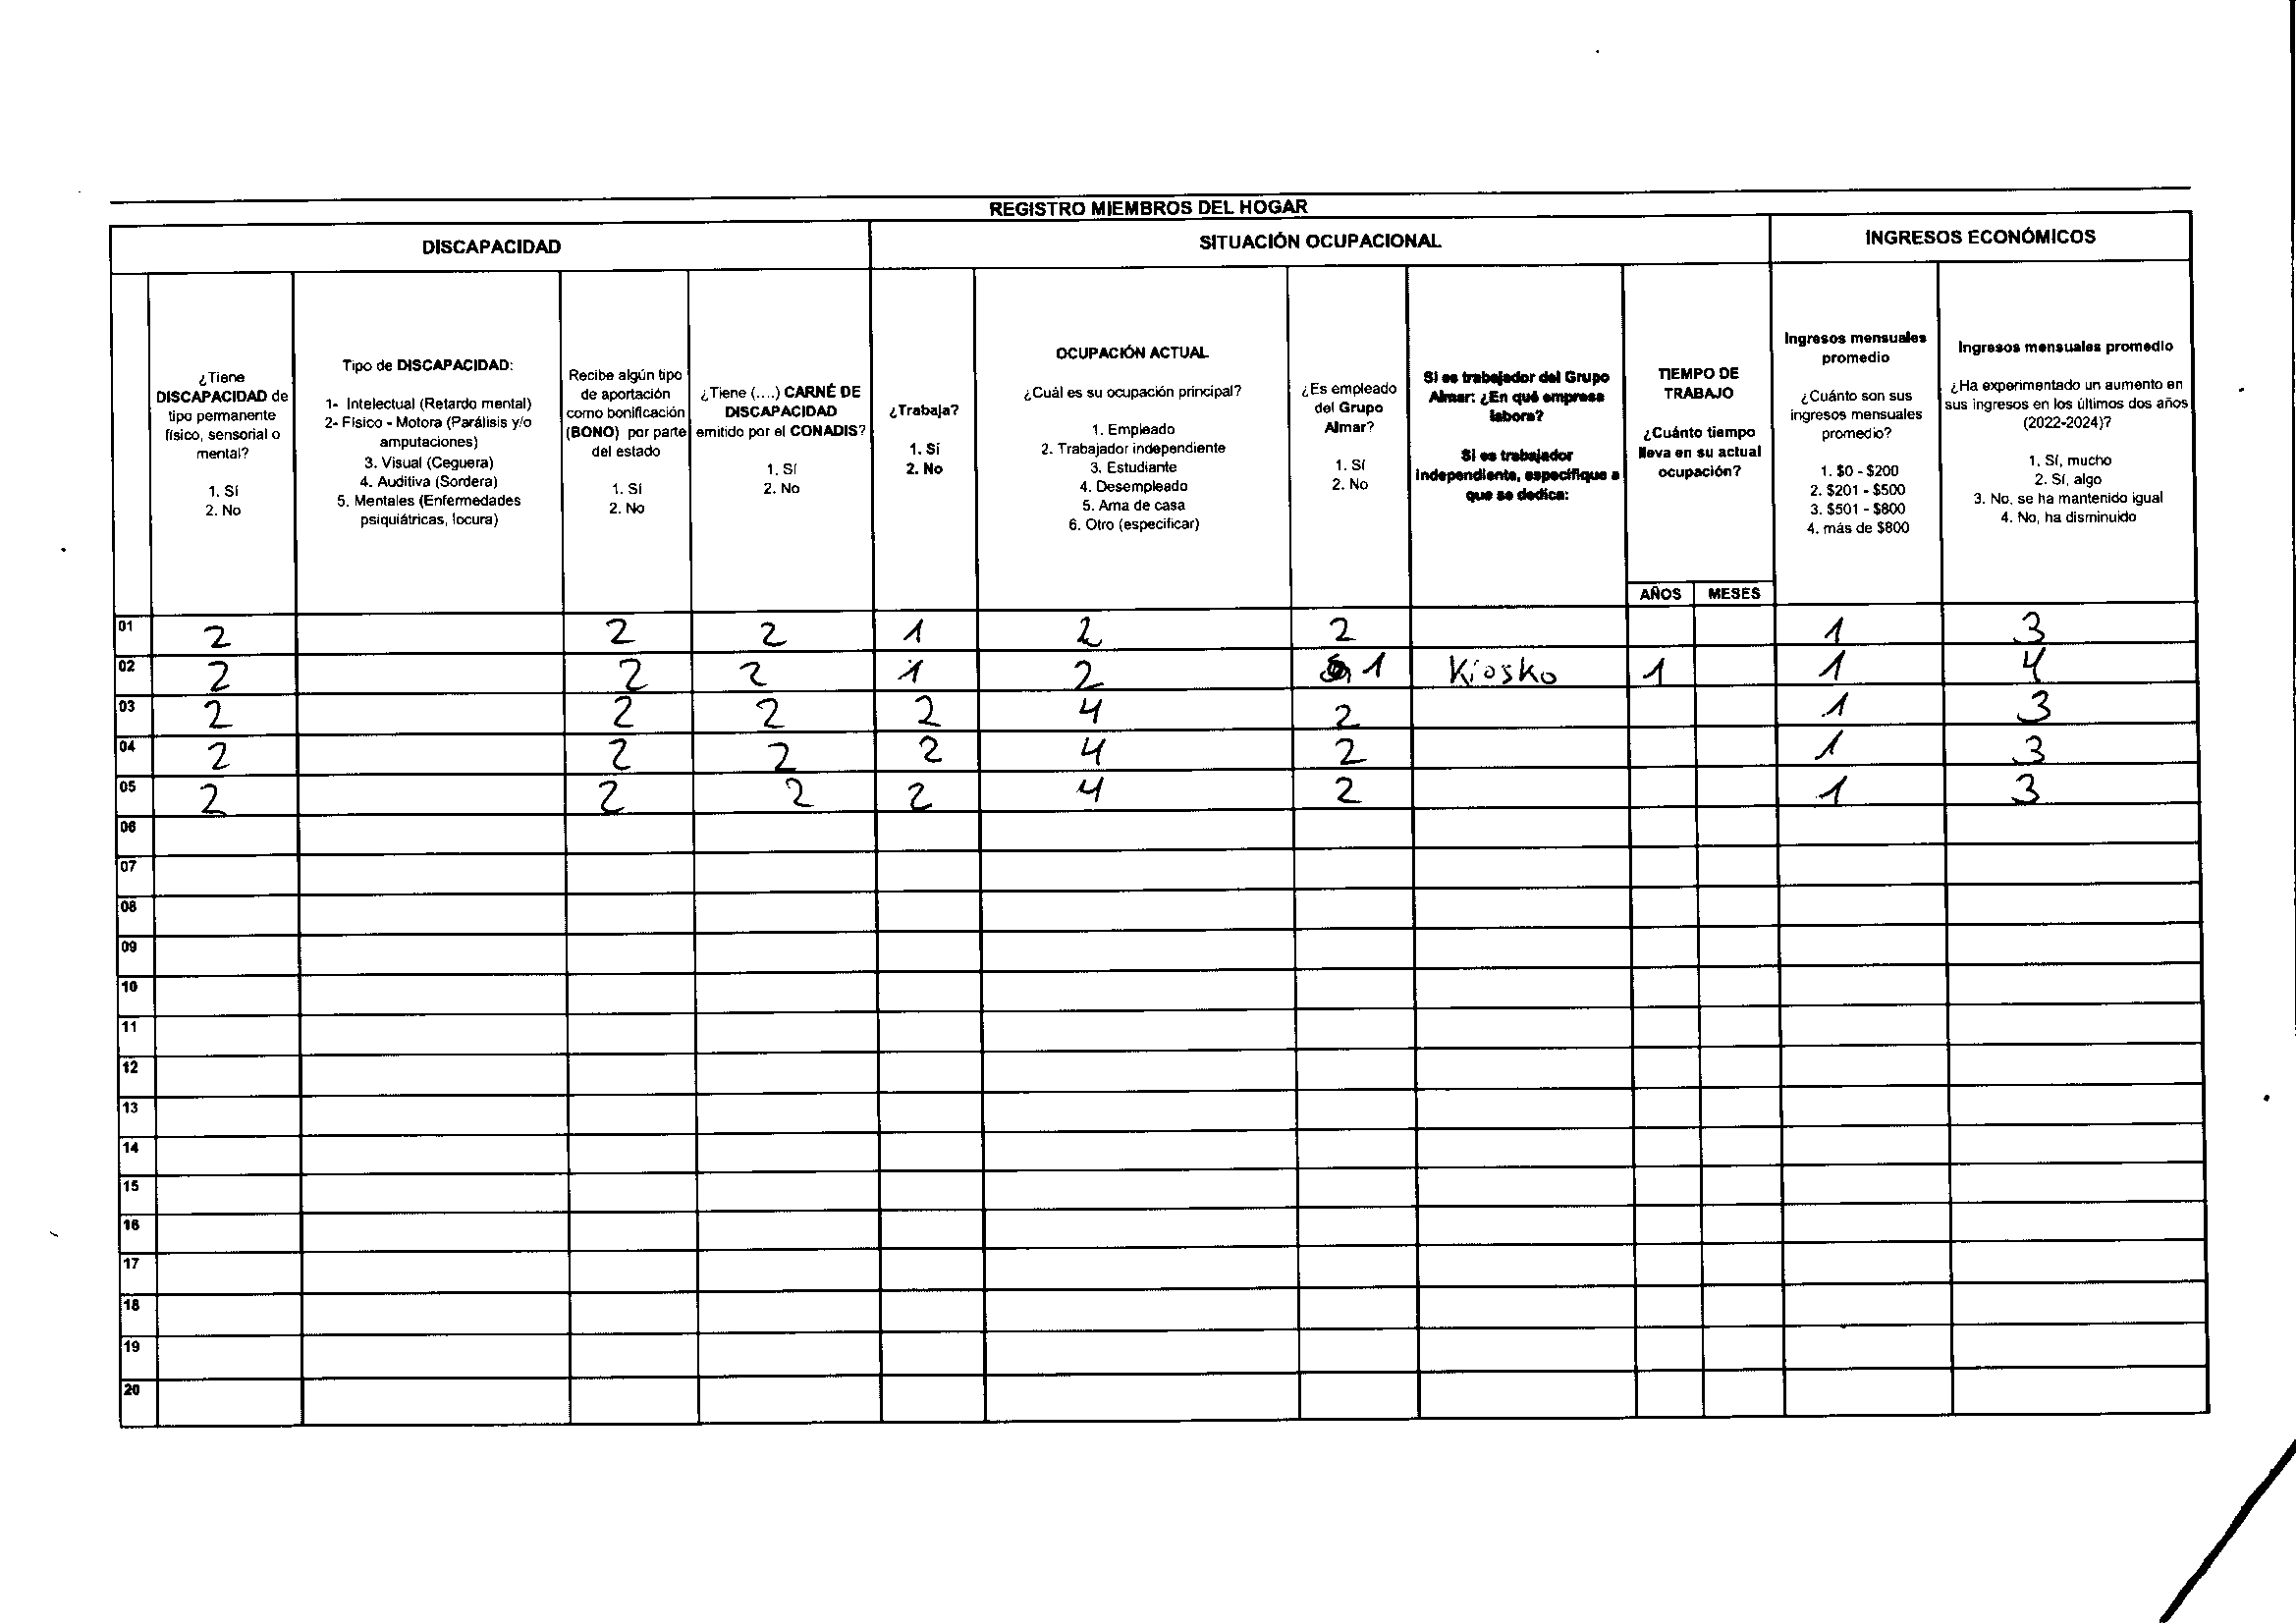 REGISTRO MIEMBROS DEL HOGAR
DISCAPACIDAD
SITUACIÓN OCUPACIONAL
INGRESOS ECONÓMICOS
¿Tiene
DISCAPACIDAD de
tipo permanente
físico, sensorial o
mental?
1. Sí
2. No
Tipo de DISCAPACIDAD:
1- Intelectual (Retardo mental)
2- Físico - Motora (Parálisis y/o
amputaciones)
3. Visual (Ceguera)
4. Auditiva (Sordera)
5. Mentales (Enfermedades
psiquiátricas, locura)
Recibe algún tipo
de aportación
como bonificación
(BONO) por parte
del estado
1. Sí
2. No
¿Tiene (....) CARNÉ DE
DISCAPACIDAD
emitido por el CONADIS?
1. Sí
2. No
¿Trabaja?
1. Sí
2. No
OCUPACIÓN ACTUAL
¿Cuál es su ocupación principal?
1. Empleado
2. Trabajador independiente
3. Estudiante
4. Desempleado
5. Ama de casa
6. Otro (especificar)
¿Es empleado
del Grupo
Almar?
1. Sí
2. No
Si es trabajador del Grupo
Almar: ¿En qué empresa
labora?
Si es trabajador
independiente, especifique a
que se dedica:
TIEMPO DE
TRABAJO
¿Cuánto tiempo
lleva en su actual
ocupación?
AÑOS MESES
Ingresos mensuales
promedio
¿Cuánto son sus
ingresos mensuales
promedio?
1. $0 - $200
2. $201 - $500
3. $501 - $800
4. más de $800
Ingresos mensuales promedio
¿Ha experimentado un aumento en
sus ingresos en los últimos dos años
(2022-2024)?
1. Sí, mucho
2. Sí, algo
3. No, se ha mantenido igual
4. No, ha disminuido
01 2 2 2 1 2 2 1 3
02 2 2 2 1 2 1 Kiosko 1 1 4
03 2 2 2 2 4 2 1 3
04 2 2 2 2 4 2 1 3
05 2 2 2 2 4 2 1 3
06
07
08
09
10
11
12
13
14
15
16
17
18
19
20